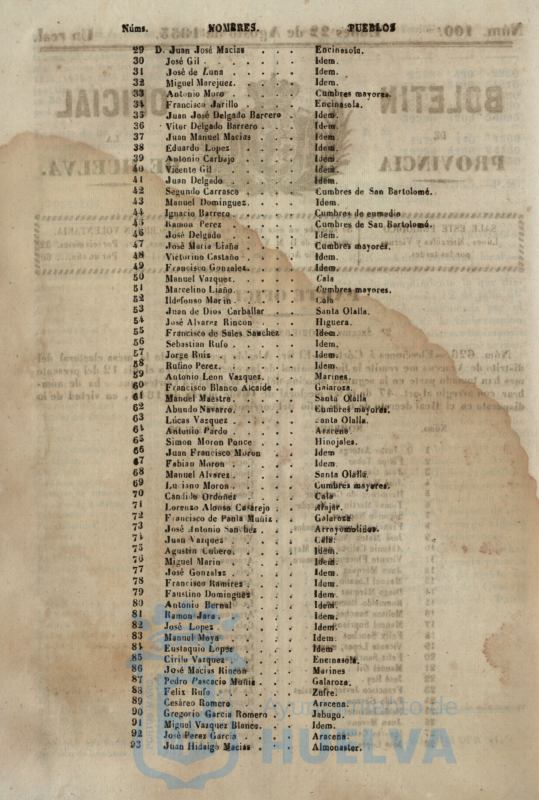 Núms. NOMBRES. PUEBLOS
29 D. Juan José Macias . . . Encinasola.
30 José Gil . . . . . Idem.
31 José de Luna . . . . Idem.
32 Miguel Marejuez. . . . Idem.
33 Antonio Moro . . . . Cumbres mayores.
34 Francisco Jarillo . . . . Encinasola.
35 Juan José Delgado Barrero Idem.
36 Vitor Delgado Barrero . . . Idem.
37 Juan Manuel Macias . . . Idem.
38 Eduardo Lopez . . . . Idem.
39 Antonio Carbajo . . . . Idem.
40 Vicente Gil . . . . . Idem.
41 Juan Delgado . . . . Idem.
42 Segundo Carrasco . . . . Cumbres de San Bartolomé.
43 Manuel Dominguez. . . . Idem.
44 Ignacio Barrero . . . . Cumbres de enmedio
45 Ramon Perez . . . . Cumbres de San Bartolomé.
46 José Delgado . . . . Idem.
47 José Maria Liaño . . . . Cumbres mayores.
48 Victorino Castaño . . . . Idem.
49 Francisco Gonzalez. . . . Idem.
50 Manuel Vazquez. . . . Cala
51 Marcelino Liaño. . . . Cumbres mayores.
52 Ildefonso Marin . . . . Cala
53 Juan de Dios Carballar . . Santa Olalla.
54 José Alvarez Rincon . . . Higuera.
55 Francisco de Sales Sanchez Idem.
56 Sebastian Rufo . . . . Idem.
57 Jorge Ruiz . . . . . Idem.
58 Rufino Perez. . . . . Idem.
59 Antonio Leon Vazquez. . . Marines.
60 Francisco Blanco Alcaide . . Galaroza.
61 Manuel Maestro. . . . Santa Olalla
62 Abundo Navarro. . . . Cumbres mayores.
63 Lúcas Vazquez . . . . Santa Olalla.
64 Antonio Pardo . . . . Aracena.
65 Simon Moron Ponce . . . Hinojales.
66 Juan Francisco Moron . . Idem
67 Fabian Moron . . . . Idem
68 Manuel Alvarez . . . . Santa Olalla.
69 Luciano Moron . . . . Cumbres mayores.
70 Candido Ordoñez . . . . Cala
71 Lorenzo Alonso Casarejo . . Alajar.
72 Francisco de Paula Muñiz . . Galaroza
73 José Antonio Sanchez . . . Arroyomolinos.
74 Juan Vazquez . . . . Cala.
75 Agustin Cubero. . . . Idem.
76 Miguel Marin . . . . Idem.
77 José Gonzalez . . . . Idem.
78 Francisco Ramirez . . . . Idem.
79 Faustino Dominguez . . . Idem.
80 Antonio Bernal . . . . Idem.
81 Ramon Jara . . . . . Idem.
82 José Lopez . . . . . Idem.
83 Manuel Moya . . . . Idem.
84 Eustaquio Lopez . . . . Idem
85 Cirilo Vazquez . . . . Encinasola.
86 José Macias Rincon . . . Marines
87 Pedro Pascacio Muñiz . . . Galaroza.
88 Felix Rufo . . . . . Zufre.
89 Cesáreo Romero . . . . Aracena.
90 Gregorio Garcia Romero . . Jabugo.
91 Miguel Vazquez Blanco. . . Idem.
92 José Perez Garcia . . . . Aracena.
93 Juan Hidalgo Macias . . . Almonaster.
Ayuntamiento de
HUELVA